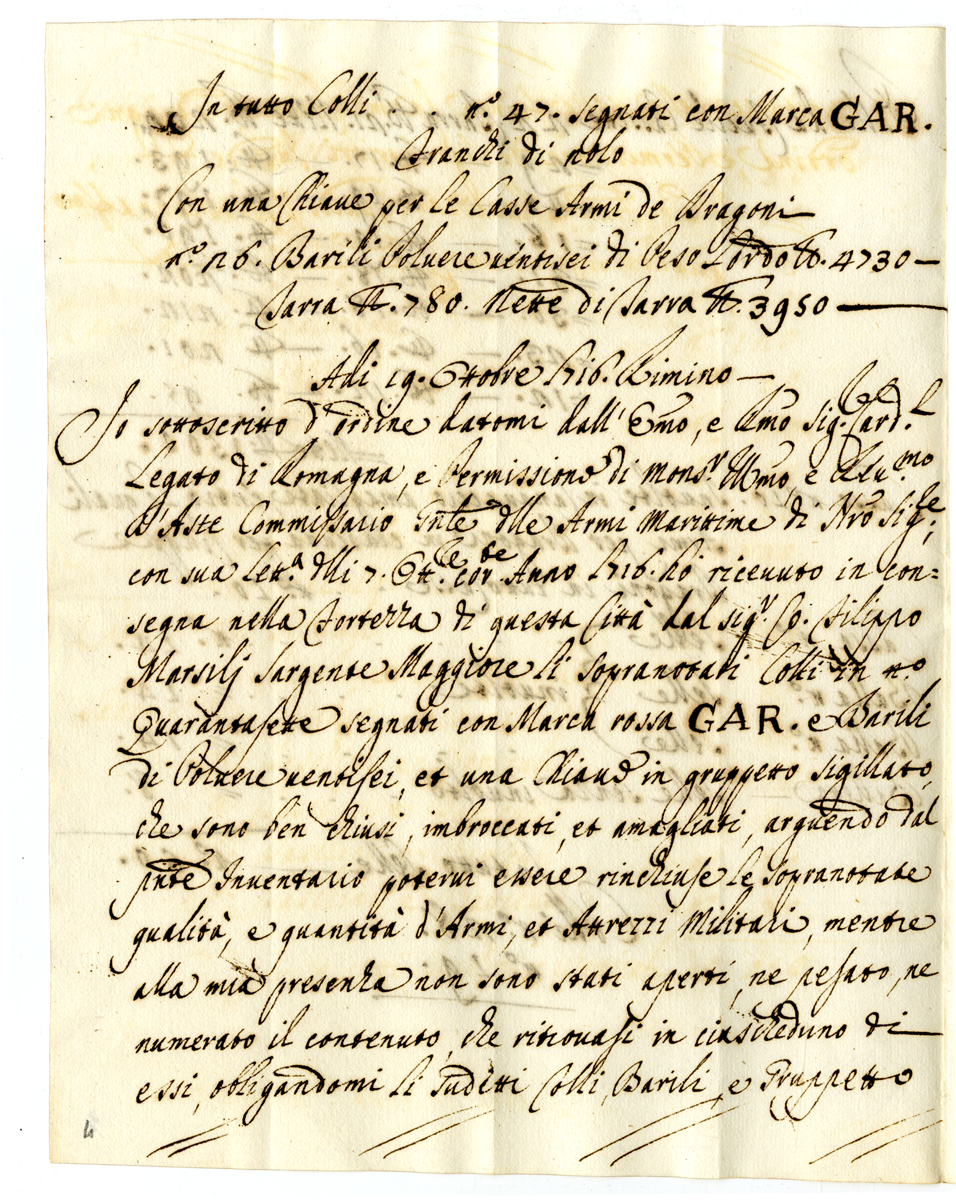 In tutto Colli . . n.º 47. segnati con Marca GAR.
Franchi di nolo
Con una Chiave per le Casse Armi de Dragoni —
n.º 26. Barili Polvere ventisei di Peso Lordo ℔. 4730 —
Tarra ℔. 780. Nette di Tarra ℔. 3950 —
Adi 19. Ottobre 1716. Rimino —
Io sottoscritto d'ordine datomi dall' Emo, e Rmo Sig.re Card.l
Legato di Romagna, e Permissione di Mons.r Illmo, e Rev.mo
d'Aste Commissario Gnle dlle Armi Marittime di Nro Sig.re,
con sua Lett.a dlli 7. Ott.re cor.te Anno 1716. hò ricevuto in con=
segna nella Fortezza di questa Città dal Sig.r Co. Filippo
Marsilj Sargente Maggiore li sopranotati Colli in n.º
Quarantasette segnati con Marca rossa GAR. e Barili
di Polvere ventisei, et una Chiave in gruppetto sigillato,
che sono ben chiusi, imbroccati, et amagliati, arguendo dal
pnte Inventario potervi essere rinchiuse le sopranottate
qualità, e quantità d'Armi, et Attrezzi Militari, mentre
alla mia presenza non sono stati aperti, ne pesato, ne
numerato il contenuto, che ritrovasi in ciascheduno di —
essi, obligandomi li sudetti Colli, Barili, e Gruppetto
4